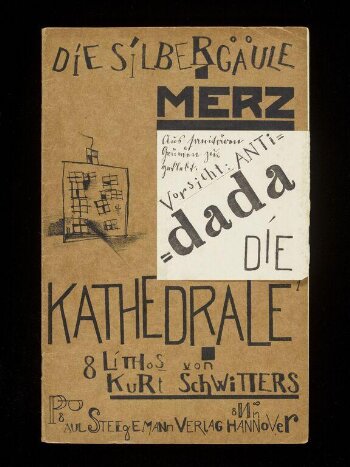 DIE SILBERGÄULE
MERZ
Aus sanitären
Gründen zu
geklebt:
Vorsicht: ANTI=
=dada
DIE
KATHEDRALE
8 LITHOS von
KURT SCHWITTERS
PAUL STEEGEMANN VERLAG HANNOVER